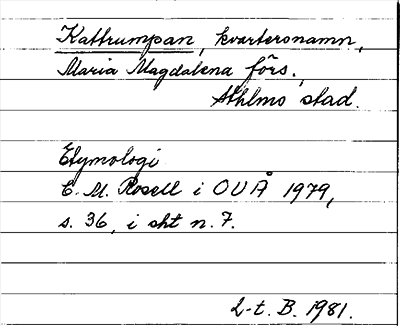 Kattrumpan, kvartersnamn,
Maria Magdalena förs.,
Sthlms stad.
Etymologi
E. M. Rosell i OUÅ 1979,
s. 36, i sht n. 7.
L-t. B. 1981.